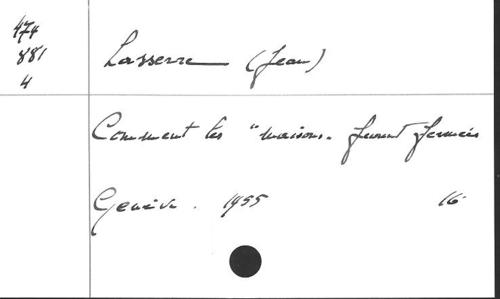 474
881
4
Lasserre (Jean)
Comment les "maisons" furent fermées
Genève. 1955 16